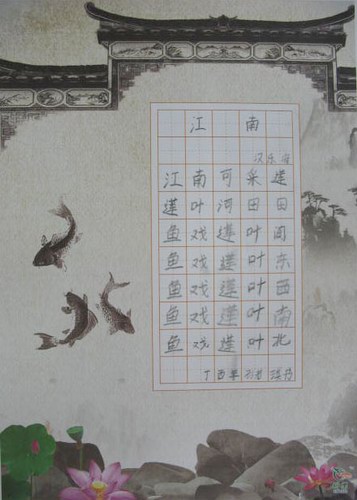 江南
汉乐府
江南可采莲
莲叶河田田
鱼戏莲叶间
鱼戏莲叶东
鱼戏莲叶西
鱼戏莲叶南
鱼戏莲叶北
丁酉年